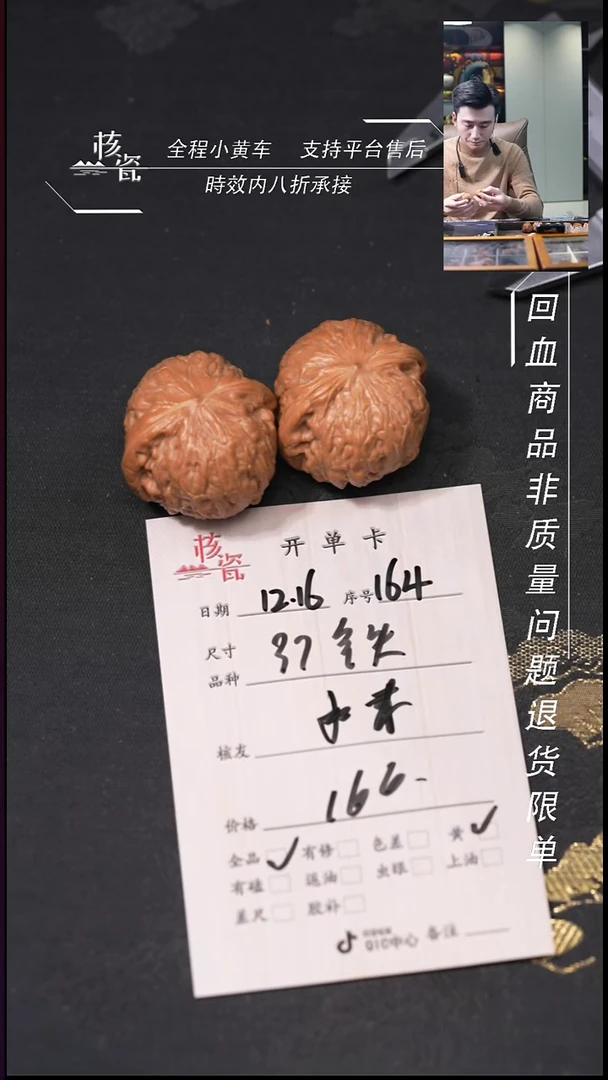 核瓷
全程小黄车 支持平台售后
時效内八折承接
回血商品非质量问题退货限单
核瓷
开单卡
日期 12.16 序号 164
尺寸 37
品种
核友
价格 166.-
全品 ✓ 有修 色差 黄 ✓
有磕 返油 虫眼 上油
差尺 胶补
QIC中心 备注